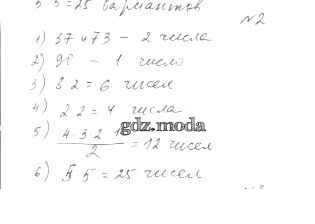 5 5 = 25 вариантов
№2
1) 37 и 73 - 2 числа
2) 90 - 1 число
3) 3 2 = 6 чисел
4) 2 2 = 4 числа
5) 4·3·2·1 / 2 = 12 чисел
gdz.moda
6) 5 5 = 25 чисел